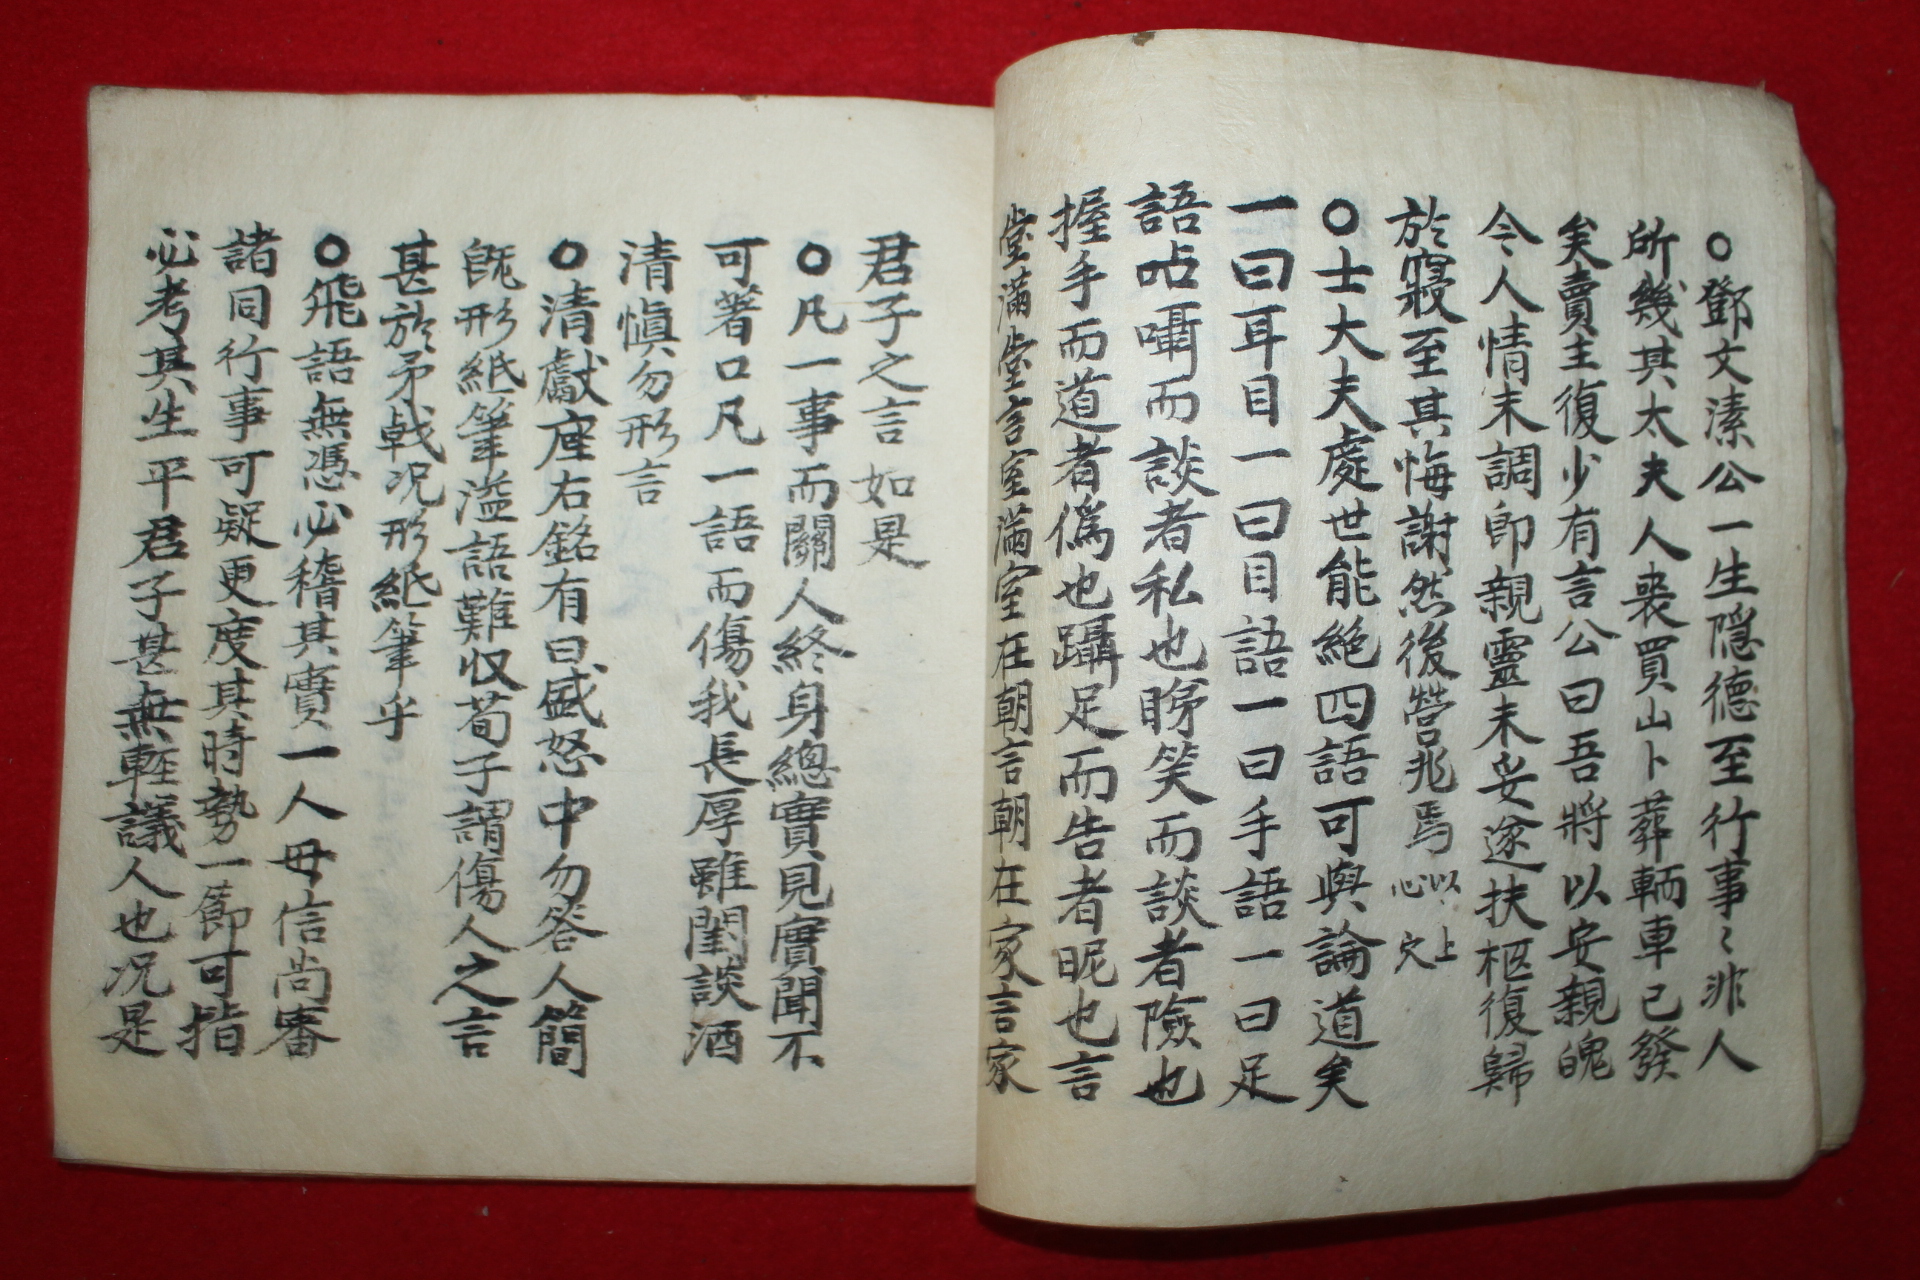 ○鄧文潔公一生隱德至行事〻非人
所幾其太夫人喪買山卜葬輌車已發
矣賣主復少有言公曰吾將以安親魄
令人情未調即親靈未妥遂扶柩復歸
於寢至其悔謝然後營兆焉 以上心穴
○士大夫處世能絶四語可與論道矣
一曰耳目一曰目語一曰手語一曰足
語呫囁而談者私也睇笑而談者險也
握手而道者僞也躡足而告者昵也言
堂滿堂言室滿室在朝言朝在家言家
君子之言如是
○凡一事而關人終身總實見實聞不
可著口凡一語而傷我長厚雖閨談酒
清愼勿形言
○清獻座右銘有曰盛怒中勿答人簡
旣形紙筆溢語難収荀子謂傷人之言
甚於矛戟况形紙筆乎
○飛語無憑必稽其實一人毋信尚審
諸同行事可疑更度其時勢一節可指
必考其生平君子甚無輕議人也况是